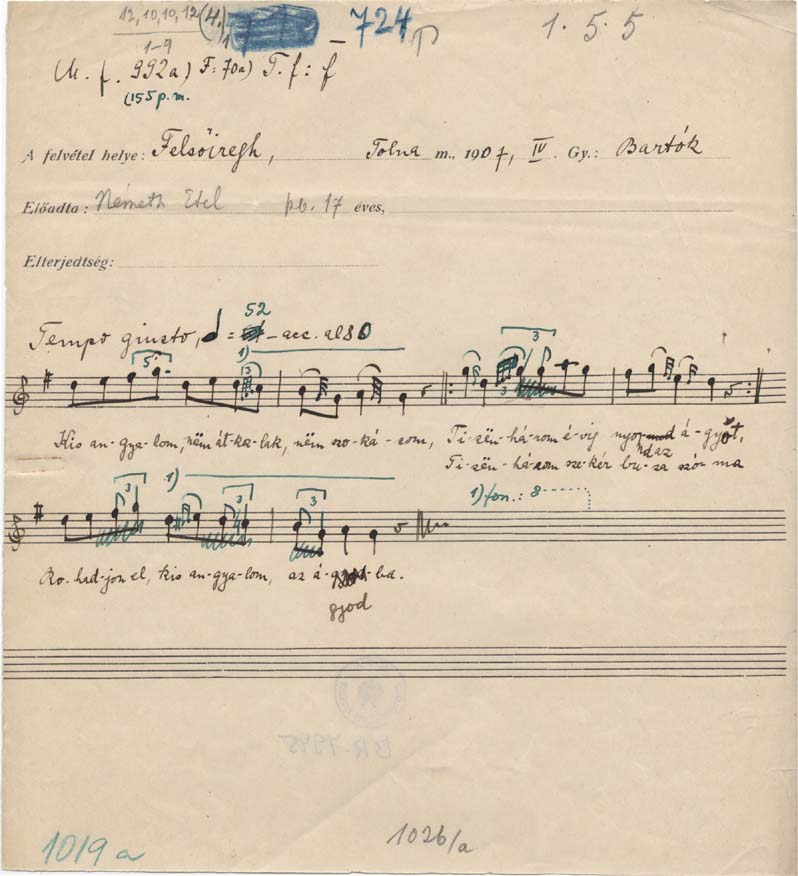 12, 10, 10, 12 (4.) 724 1. 5. 5
1-9
M. f. 992a) F: 70a) T. f: f
(155 p. m.
A felvétel helye: Felsőiregh, Tolna m., 1907, IV. Gy.: Bartók
Előadta: Németh Etel pb. 17 éves,
Elterjedtség:
Tempo giusto, = 52 - acc. al 80
1) 3
5 3 3
Kis an-gya-lom, nëm át-ka-lak, nëm szo-ká-som, Ti-zën-há-rom é-vig nyo- á-győt,
ndaz
Ti-zën-há-rom sze-kér bu-za szó-ma
3 1) 3 3 1) fon.: 8
Ro-had-jon el, kis an-gya-lom, az á- -ba.
gyod
BR. 1945
1019 a 1026/a